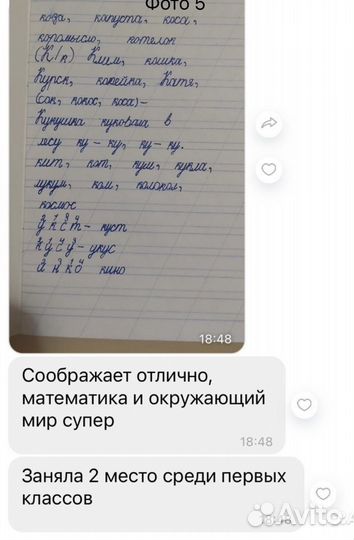 Фото 5
коза, капуста, коса,
коромысло, котелок
(К/к) Клим, кошка,
Курск, копейка, Катя,
(сок, кокос, коса)–
Кукушка куковала в
лесу ку-ку, ку-ку.
кит, кот, кум, кукла,
лукум, ком, колокол,
космос
у к с т – куст
к у с у – укус
о н к и кино
18:48
Соображает отлично,
математика и окружающий
мир супер
18:48
Заняла 2 место среди первых
классов
18:48
Avito